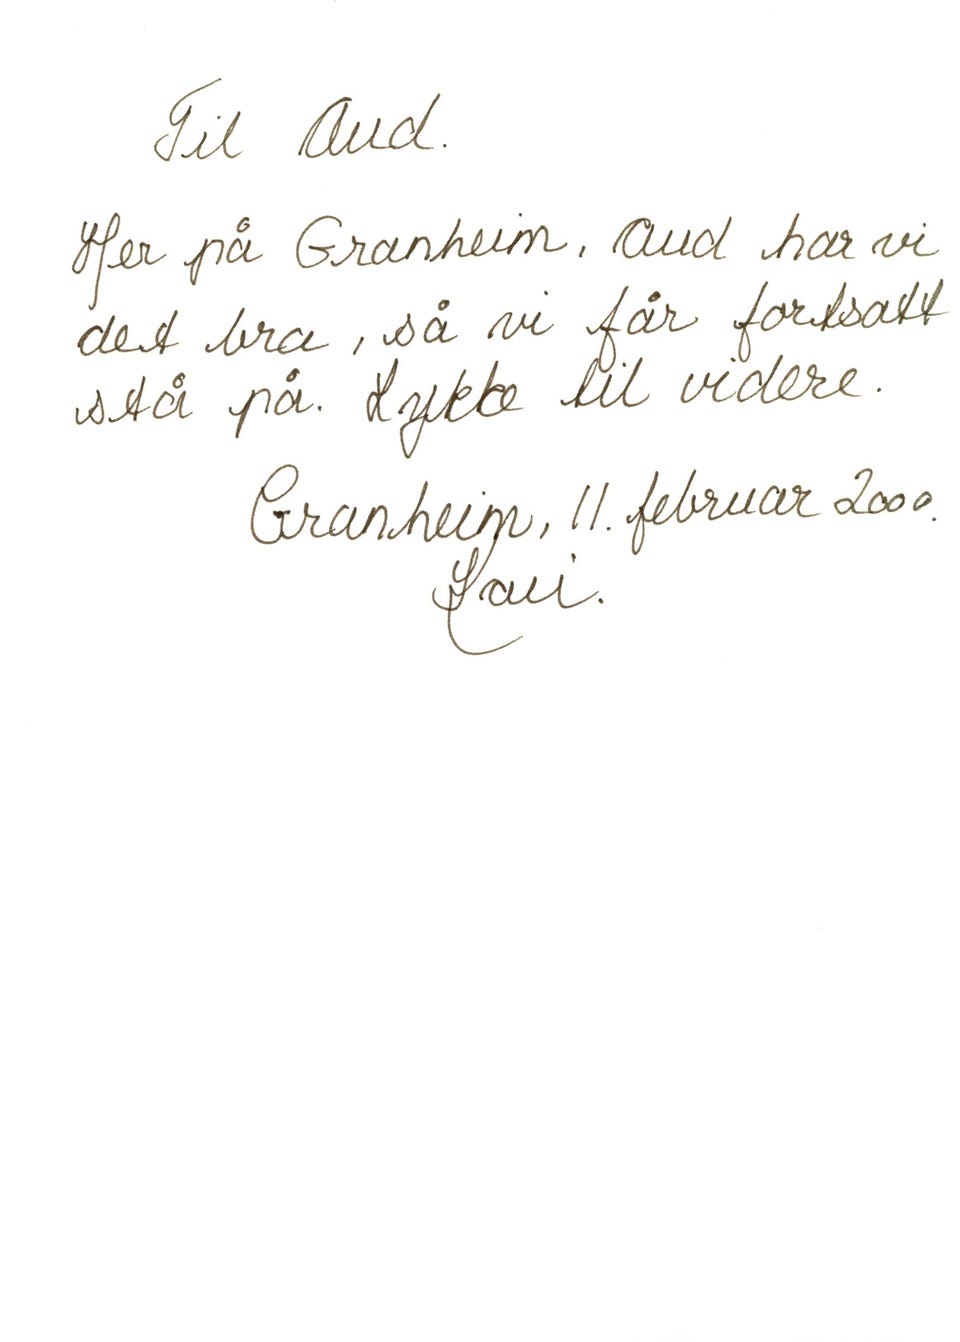 Til Aud.
Her på Granheim, Aud har vi
det bra, så vi får fortsatt
stå på. Lykke til videre.
Granheim, 11. februar 2000.